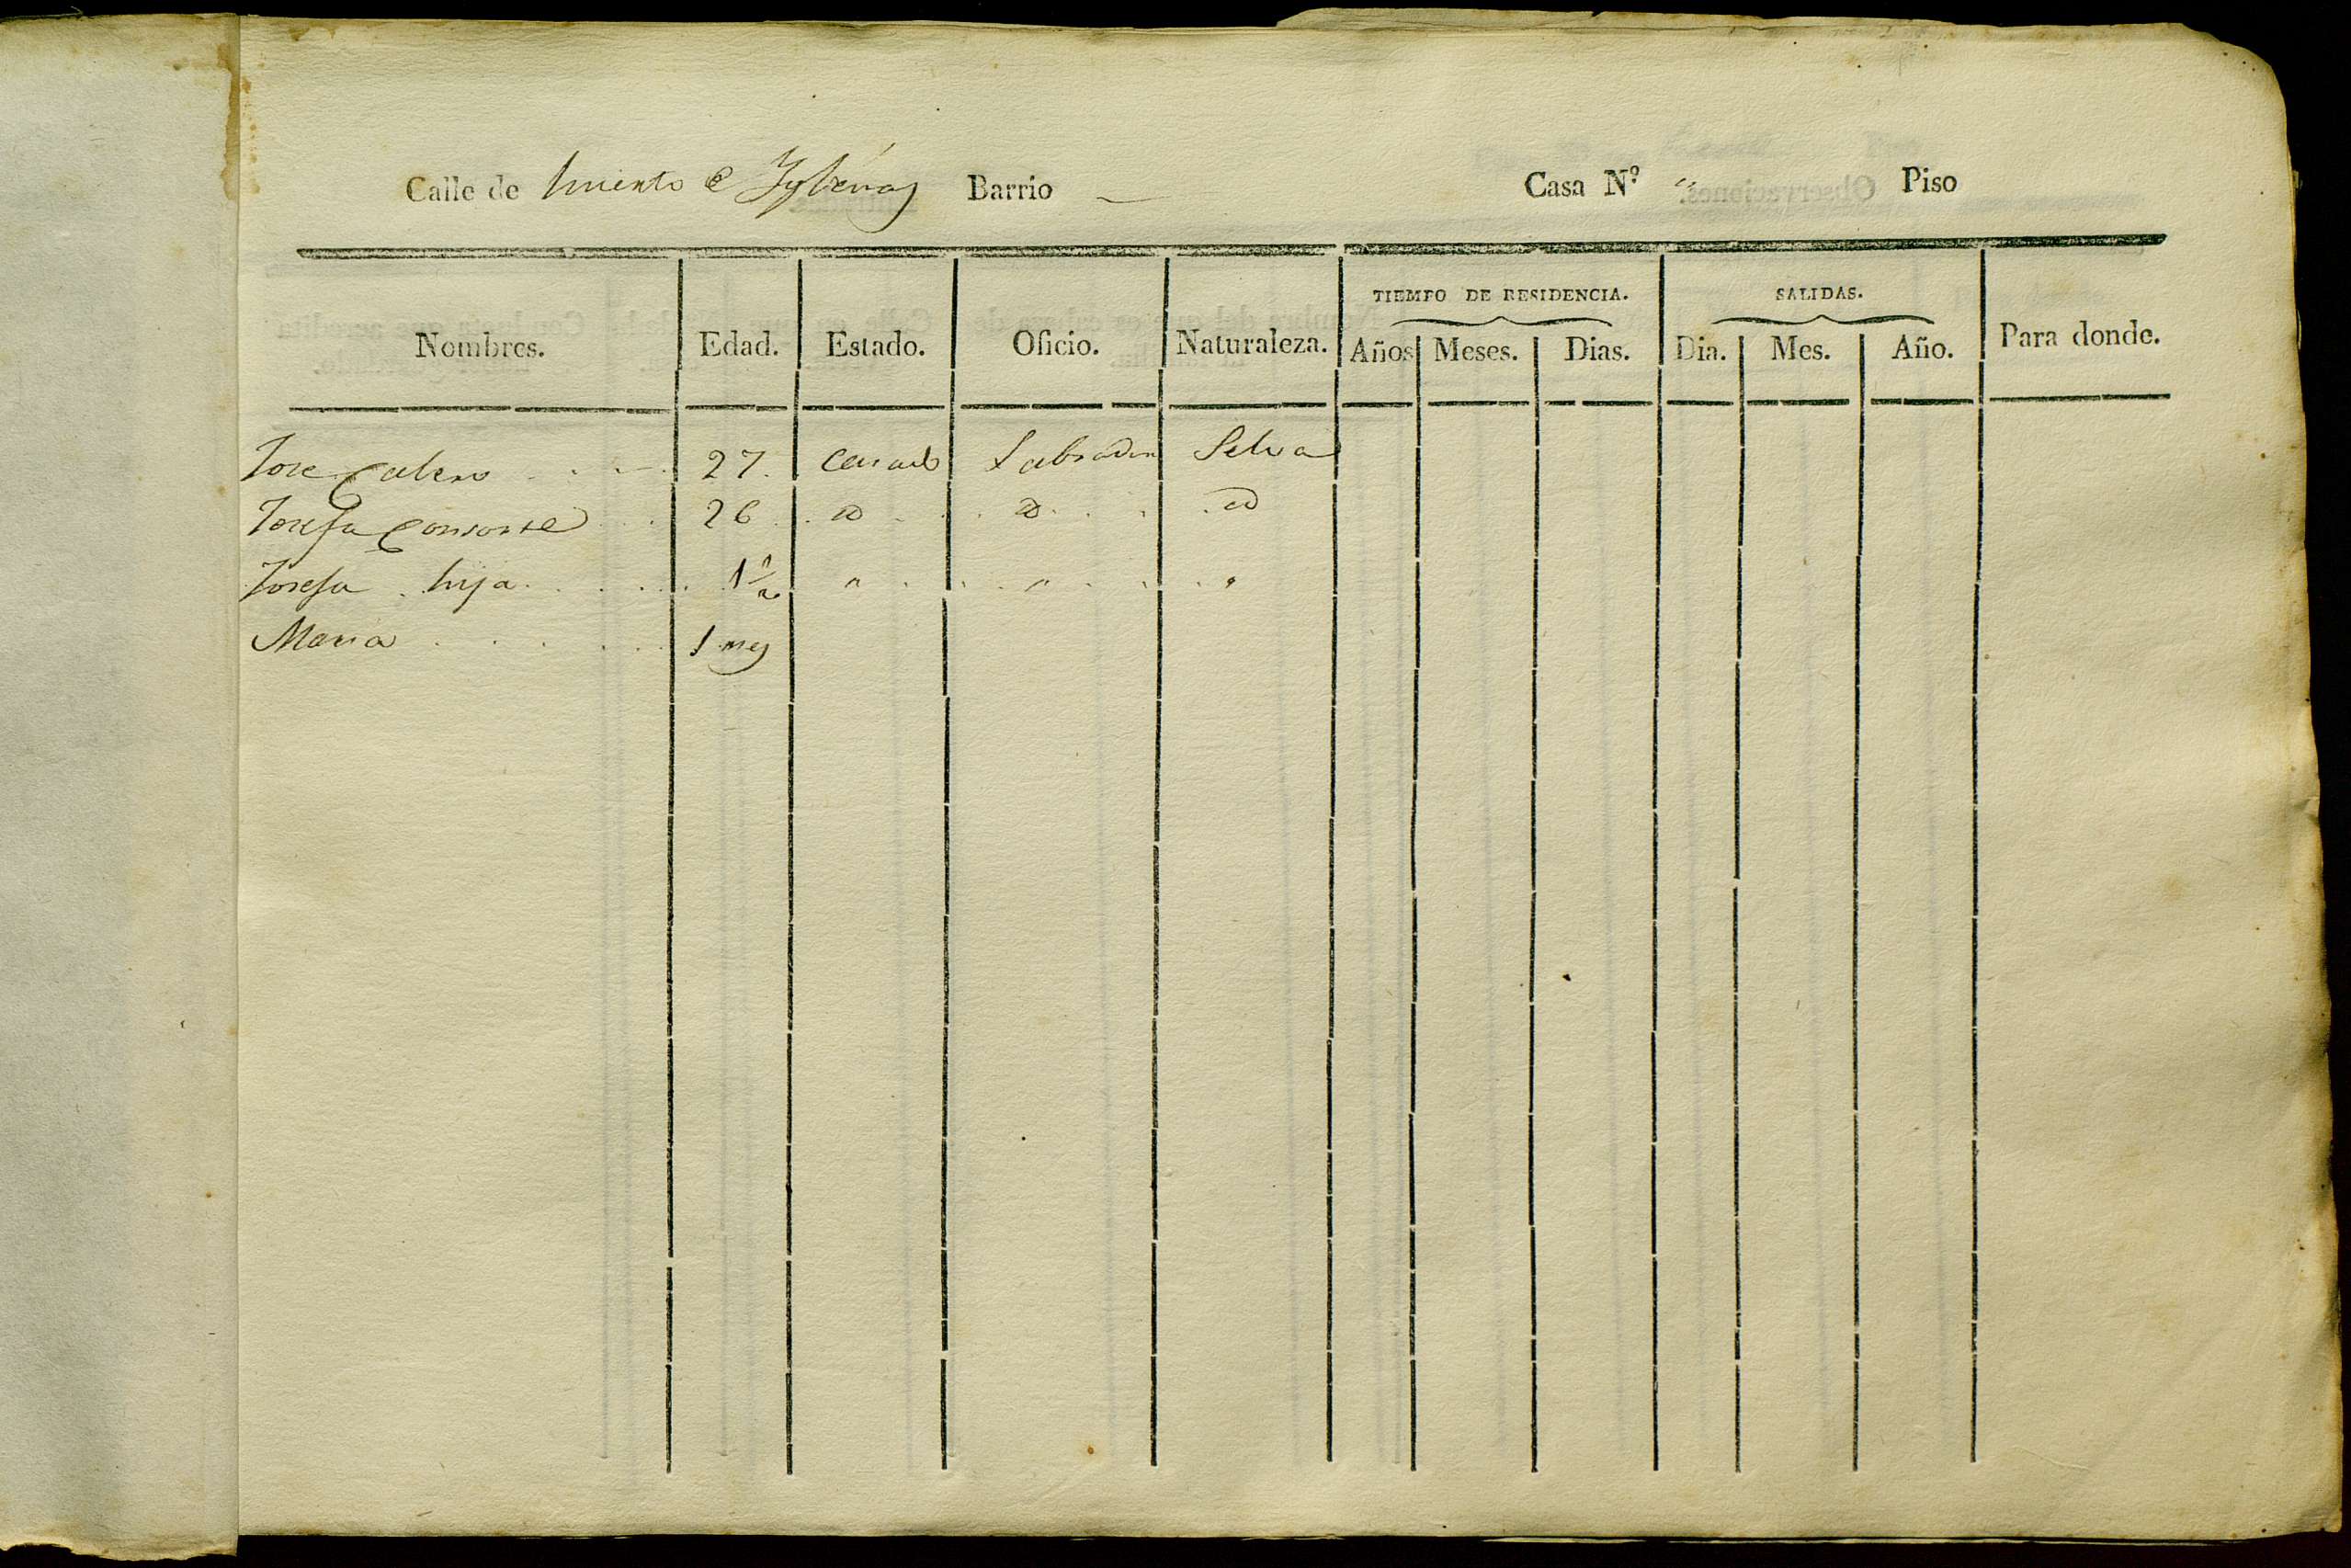 Calle de huerto de Yglesias Barrio — Casa Nº " Piso
TIEMPO DE RESIDENCIA. SALIDAS.
Nombres. Edad. Estado. Oficio. Naturaleza. Años Meses. Dias. Dia. Mes. Año. Para donde.
Jose Calero 27. Casado Labrador Selva
Josefa Consorte 26 id id id
Josefa hija 1 1/2 " " "
Maria 1 mes